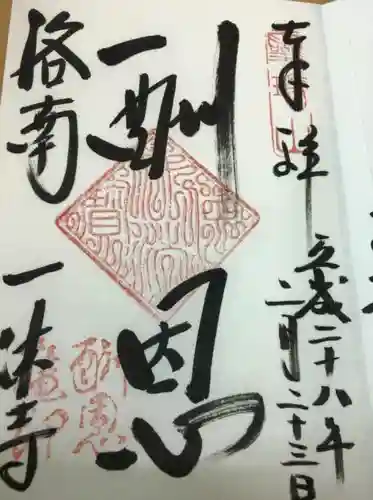 奉拝
平成二十八年
二月二十三日
酬恩
洛南 一休寺
酬恩
庵印